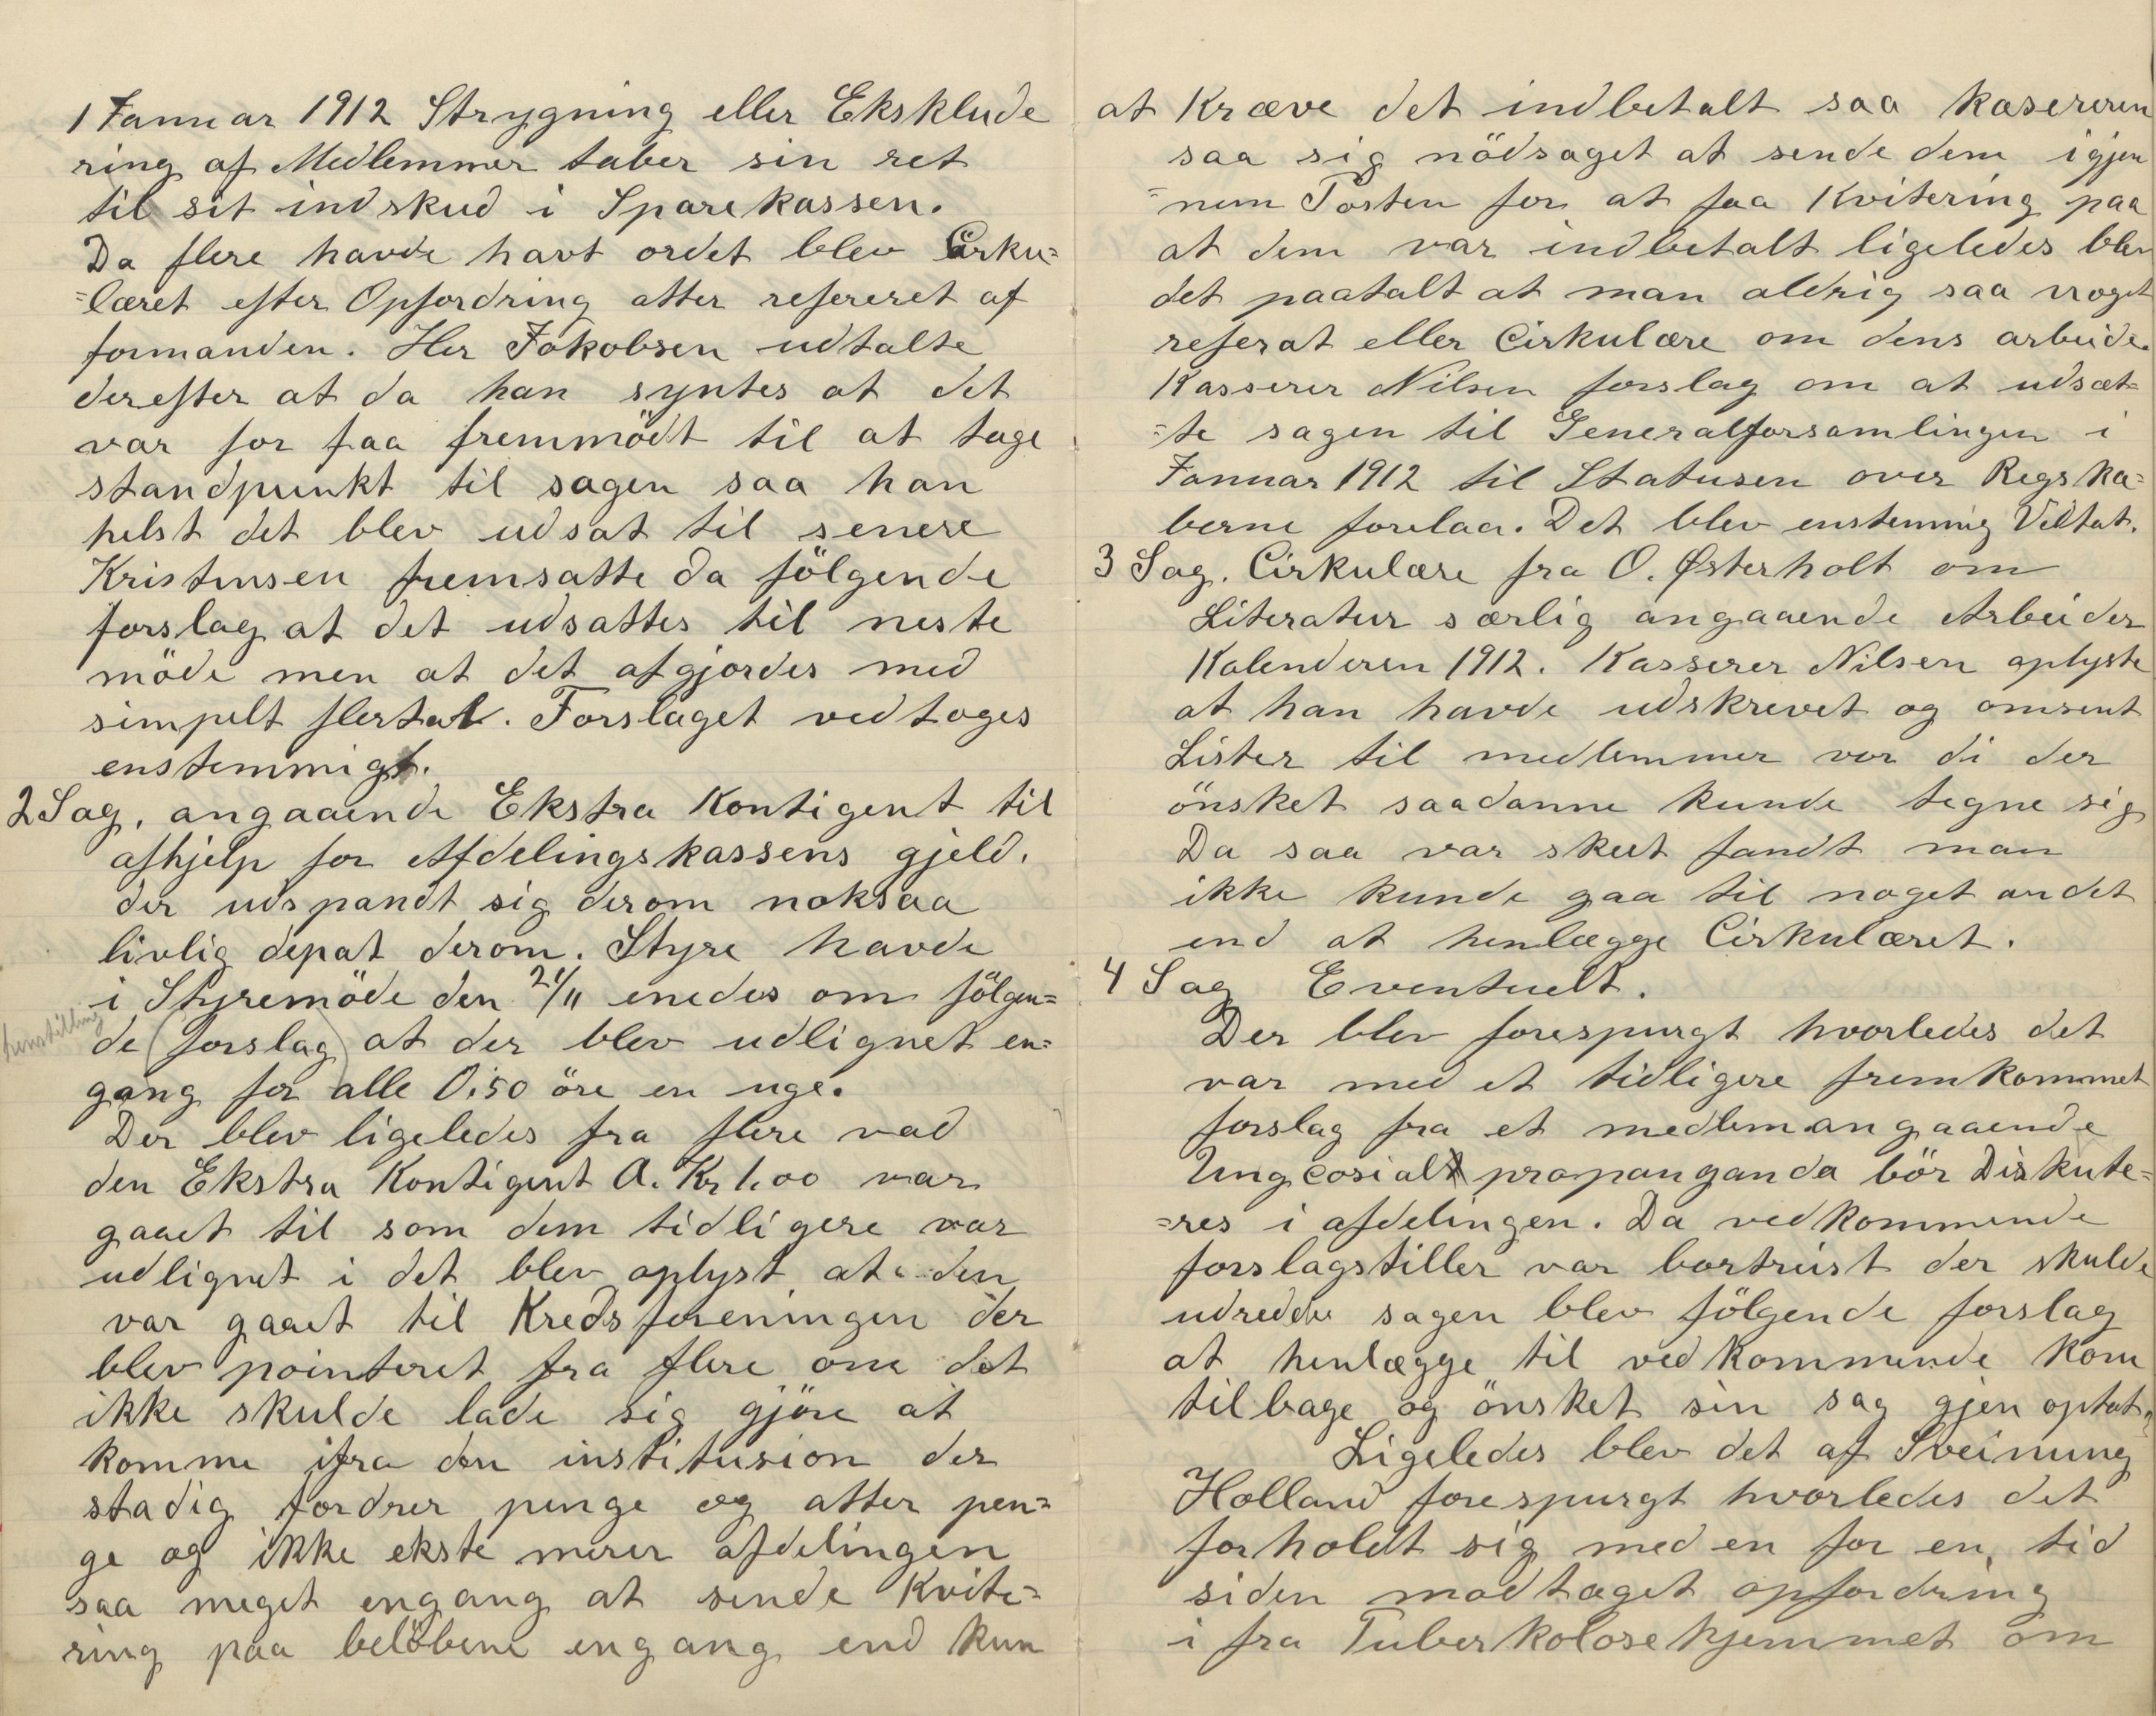 1 Januar 1912 Strygning eller Eksklude
ring af Medlemmer taber sin ret
til sit indskud i Sparekassen.
Da flere havde havt ordet blev Cirku=
=læret efter Opfordring atter refereret af
formanden. Her Jakobsen udtalte
derefter at da han syntes at det
var for faa fremmödt til at tage
standpunkt til sagen saa han
helst det blev udsat til senere
Kristensen fremsatte da fölgende
forslag at det udsattes til neste
möde men at det afgjordes med
simpelt flertal. Forslaget vedtoges
enstemmigt.
2 Sag, angaaende Ekstra Kontigent til
afhjelp for Afdelingskassens gjeld.
der udspandt sig derom noksaa
livlig depat derom. Styre havde
i Styremöde den 21/11 enedes om fölgen=
henstilling
de (forslag) at der blev udlignet en=
gang for alle 0.50 öre en uge.
Der blev ligeledes fra flere vad
den Ekstra Kontigent A. Kr 1.00 var
gaaet til som dem tidligere var
udlignet i det blev oplyst at den
var gaaet til Kredsforeningen der
blev pointeret fra flere om det
ikke skulde lade sig gjöre at
komme ifra den institusion der
stadig fordrer penge og atter pen=
ge og ikke ekste merer afdelingen
saa meget engang at sende Kvite=
ring paa belöbene engang end kun
at Kræve det indbetalt saa kasereren
saa sig nödsaget at sende dem igjen
=nem Posten for at faa Kvitering paa
at dem var indbetalt ligeledes blev
det paatalt at man aldrig saa noget
referat eller Cirkulære om dens arbeide.
Kasserer Nilsen forslag om at udsæt=
=te sagen til Generalforsamlingen i
Januar 1912 til Statusen over Regska=
berne forelaa. Det blev enstemmig Vedtat.
3 Sag. Cirkulære fra O. Østerholt om
Literatur særlig angaaende Arbeider
Kalenderen 1912. Kasserer Nilsen oplyste
at han havde udskrevet og omsent
Lister til medlemmer vor di der
önsket saadanne kunde tegne sig
Da saa var skeet fandt man
ikke kunde gaa til noget andet
end at henlægge Cirkulæret.
4 Sag Eventuelt.
Der blev forespurgt hvorledes det
var med et tidligere fremkommet
forslag fra et medlem angaaende
Ung cosialt propanganda bör Diskute=
=res i afdelingen. Da vedkommende
forslagstiller var bortreist der skulde
udredde sagen blev fölgende forslag
at henlægge til vedkommende kom
tilbage og önsket sin sag gjen optat.
Ligeledes blev det af Sveinung
Holland forespurgt hvorledes det
forholdt sig med en for en tid
siden modtaget opfordring
i fra Tuberkolosehjemmet om